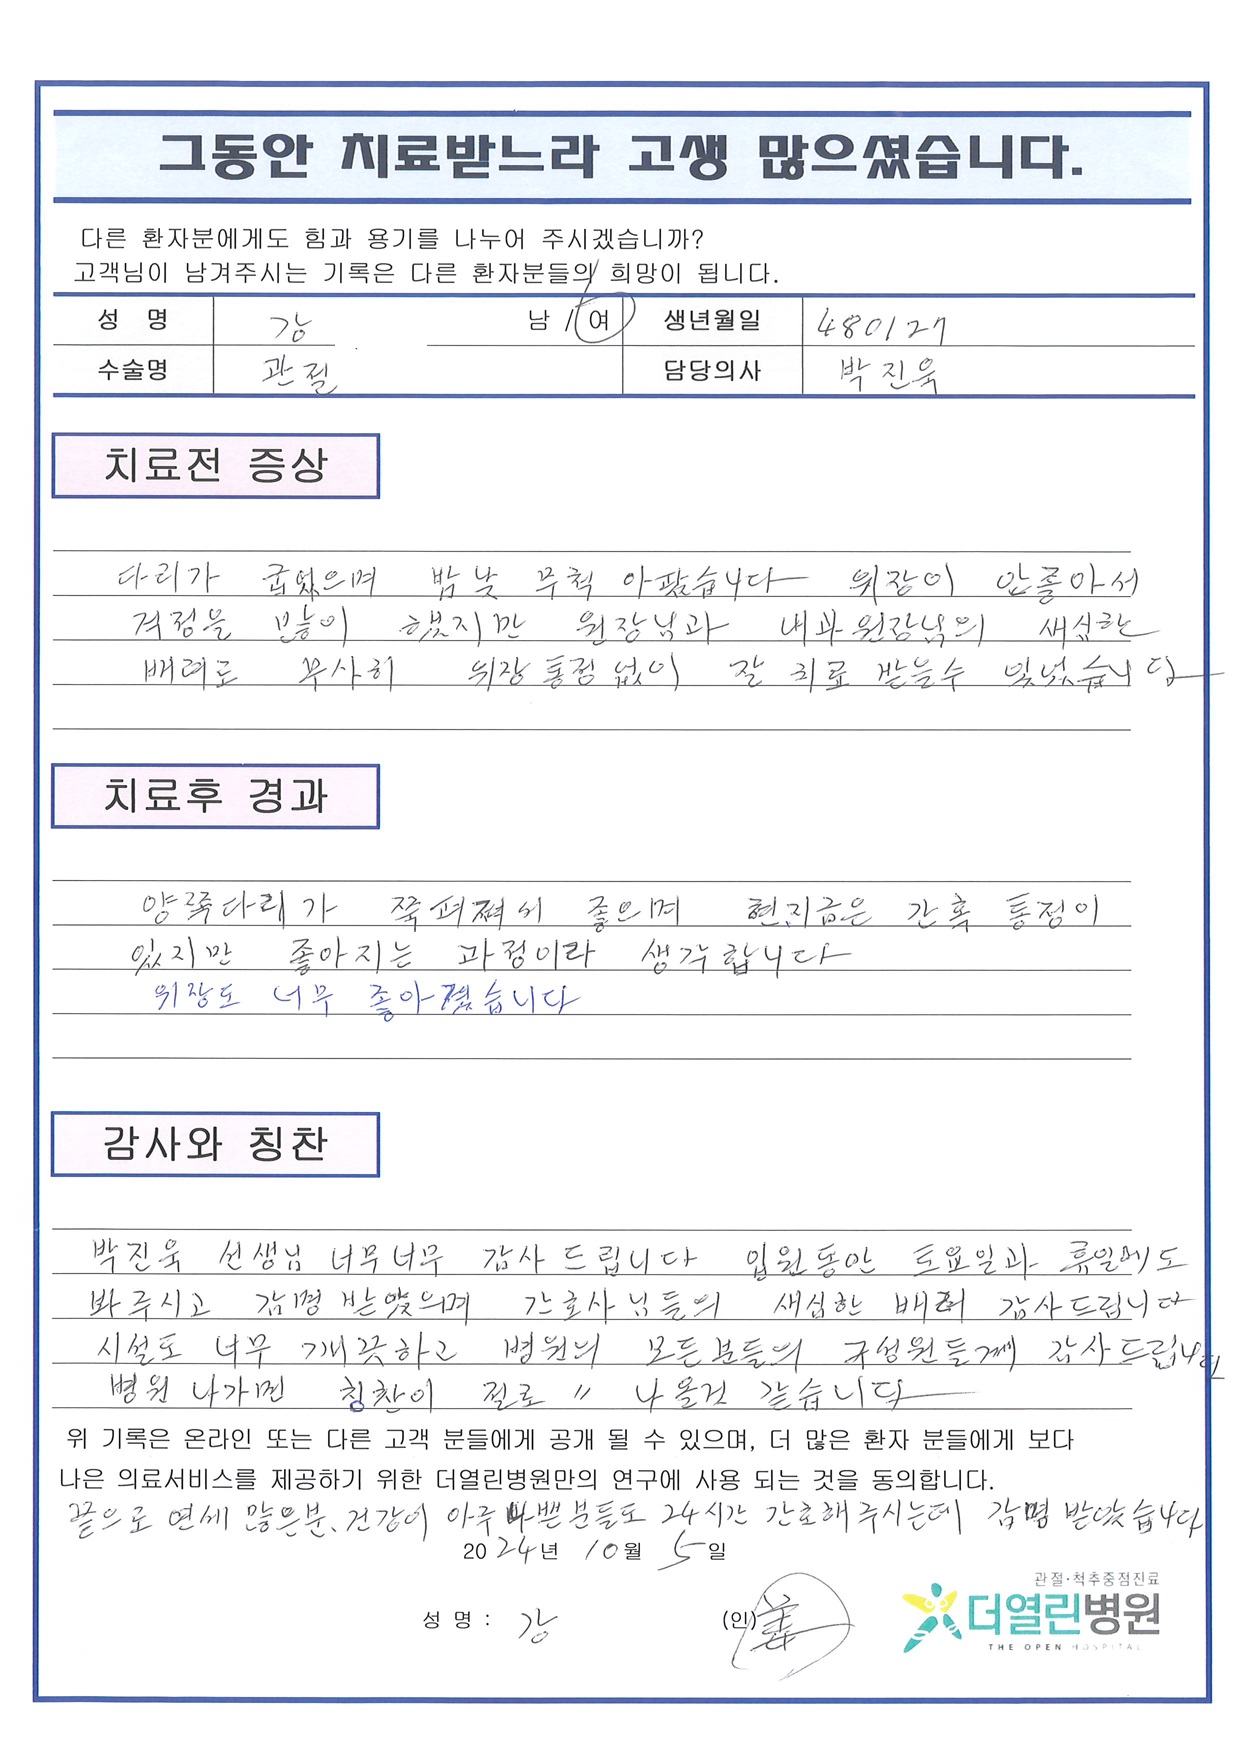 그동안 치료받느라 고생 많으셨습니다.
다른 환자분에게도 힘과 용기를 나누어 주시겠습니까?
고객님이 남겨주시는 기록은 다른 환자분들의 희망이 됩니다.
성 명 강 남 / 여 생년월일 480127
수술명 관절 담당의사 박진욱
치료전 증상
다리가 굽었으며 밤낮 무척 아팠습니다 위장이 안좋아서
걱정을 많이 했지만 원장님과 내과원장님의 세심한
배려로 무사히 위장통정없이 잘 치료 받을수 있넜습니다
치료후 경과
양쪽다리가 쭉 펴져서 좋으며 현.지금은 간혹 통정이
있지만 좋아지는 과정이라 생각합니다
위장도 너무 좋아졌습니다
감사와 칭찬
박진욱 선생님 너무너무 감사드립니다 입원동안 토요일과 휴일에도
봐주시고 감명받았으며 간호사님들의 새심한 배려 감사드립니다
시설도 너무 깨끗하고 병원의 모든분들의 구성원들께 감사드립니다
병원 나가면 칭찬이 절로 〃 나올것 같습니다
위 기록은 온라인 또는 다른 고객 분들에게 공개 될 수 있으며, 더 많은 환자 분들에게 보다
나은 의료서비스를 제공하기 위한 더열린병원만의 연구에 사용 되는 것을 동의합니다.
끝으로 연세 많은분, 건강이 아주 나쁜분들도 24시간 간호해주시는데 감명 받았습니다
2024년 10월 5일
관절·척추중점진료
성 명 : 강 (인)
더열린병원
THE OPEN HOSPITAL